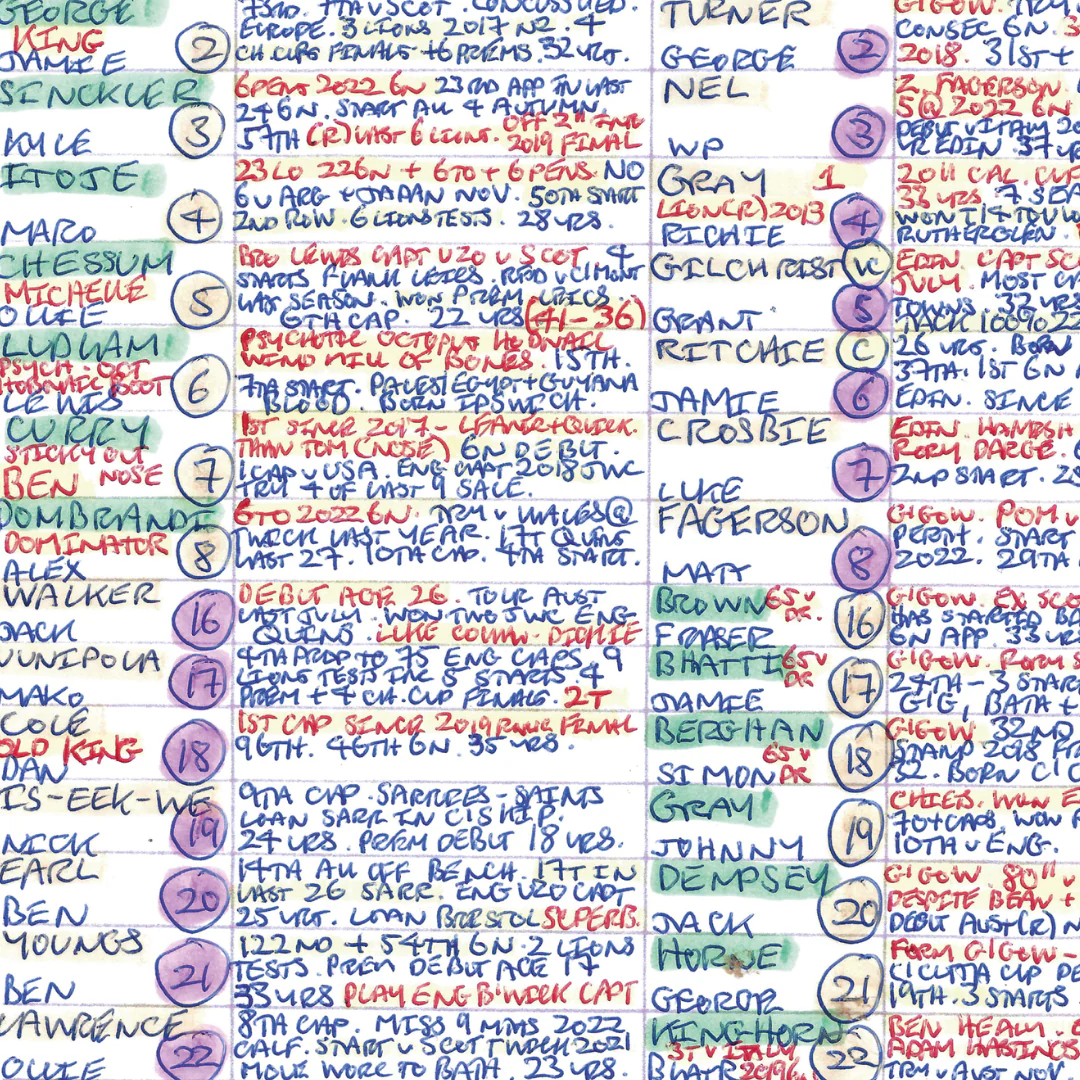 GEORGE
KING
JAMIE
2
73RD. 7TH V SCOT. CONCUSSED.
EUROPE. 3 LIONS 2017 NZ. 4
CH. CUPS FINALS + 6 PREMS. 32 YRS.
TURNER
GEORGE
2
CONSEC 6N.
2018. 31ST +
SINCKLER
KYLE
3
6 PENS 2022 6N 23RD APP IN LAST
24 6N. START ALL 4 AUTUMN.
57TH (R) LAST 6 LIONS. OFF 2ND MIN
2019 FINAL
NEL
WP
3
Z. FAGERSON.
5 @ 2022 6N
DEBUT V ITALY
EDIN. 37 YRS
ITOJE
MARO
4
23 LO 22 6N + 6 TO + 6 PENS. NO
6 V ARG + JAPAN NOV. 50TH START
2ND ROW. 6 LIONS TESTS. 28 YRS.
GRAY 1
LION (R) 2013
RICHIE
4
2011 CAL. CUP
33 YRS. 7 SEA
WON T14 TOULO
RUTHERGLEN.
CHESSUM
MICHELLE
OLLIE
5
BRO LEWIS CAPT U20 V SCOT 4
STARTS FLANK LEICS. RED V CLMONT
LAST SEASON. WON PREM LEICS.
6TH CAP. 22 YRS (41-36)
GILCHRIST VC
GRANT
5
EDIN. CAPT SC
JULY. MOST C
TOWNS. 32 YRS
TACK 100% 22
LUDLAM
PSYCH. OCT
HOBNAIL BOOT
LEWIS
6
PSYCHOTIC OCTOPUS HOBNAIL
WIND MILL OF BONES. 15TH.
7TH START. PALES/EGYPT + GUYANA
BLOOD. BORN IPSWICH.
RITCHIE C
JAMIE
6
26 YRS. BORN
37TH. 1ST 6N
EDIN. SINCE
CURRY
STICKY OUT
BEN NOSE
7
1ST SINCE 2017 - LEANER + QUICK.
THAN TOM (NOSE) 6N DEBUT.
1 CAP V USA. ENG CAPT 2018 JWC
TRY 4 OF LAST 9 SALE.
CROSBIE
LUKE
7
EDIN. HAMISH
RORY DARGE.
2ND START. 25
DOMBRANDT
DOMINATOR
ALEX
8
6 TO 2022 6N. TRY V WALES @
TWICK LAST YEAR. 17T QUINS
LAST 27. 10TH CAP. 4TH START.
FAGERSON
MATT
8
GLGOW. POM V
PERTH. START
2022. 29TH
WALKER
JACK
16
DEBUT AGE 26. TOUR AUST
LAST JULY. WON TWO JWC ENG
QUINS. LUKE COWN-DICKIE
BROWN 65 V
DR.
FRASER
16
GLGOW. EX SCO
HAS STARTED
6N APP. 33 YRS
VUNIPOLA
MAKO
17
4TH PROP TO 75 ENG CAPS. 9
LIONS TESTS INC 5 STARTS. 4
PREM + 4 CH. CUP FINALS. 2T
BHATTI 65 V
DR
JAMIE
17
GLGOW. RORY S
27TH - 3 START
GLG, BATH +
COLE
OLD KING
DAN
18
1ST CAP SINCE 2019 RWC FINAL
96TH. 46TH 6N. 35 YRS.
BERGHAN
65 V
DR
SIMON
18
GLGOW 32ND
STAND 2018 FR
32. BORN
IS-EEK-WE
NICK
19
9TH CAP. SARRIES - SAINTS
LOAN SARR IN C'SHIP.
24 YRS. PREM DEBUT 18 YRS.
GRAY
JOHNNY
19
CHIEFS. WON E
70+ CAPS. WON
10TH V ENG.
EARL
BEN
20
14TH ALL OFF BENCH. 17T IN
LAST 26 SARR. ENG U20 CAPT
25 YRS. LOAN BRISTOL SUPERB.
DEMPSEY
JACK
20
GLGOW 80" V
DESPITE BEAN +
DEBUT AUST (R)
YOUNGS
BEN
21
122ND + 54TH 6N. 2 LIONS
TESTS. PREM DEBUT AGE 17
33 YRS PLAY ENG B'WICK CAPT
HORNE
GEORGE
21
FORM GLGOW -
C'CUTTA CUP DE
19TH. 3 STARTS
LAWRENCE
OLLIE
22
8TH CAP. MISS 9 MTHS 2022
CALF. START V SCOT TWICK 2021
MOVE WORC TO BATH. 23 YRS.
KINGHORN
3T V ITALY
BLAIR 2019 6N
22
BEN HEALY.
ADAM HASTINGS
TRY V AUST NOV.